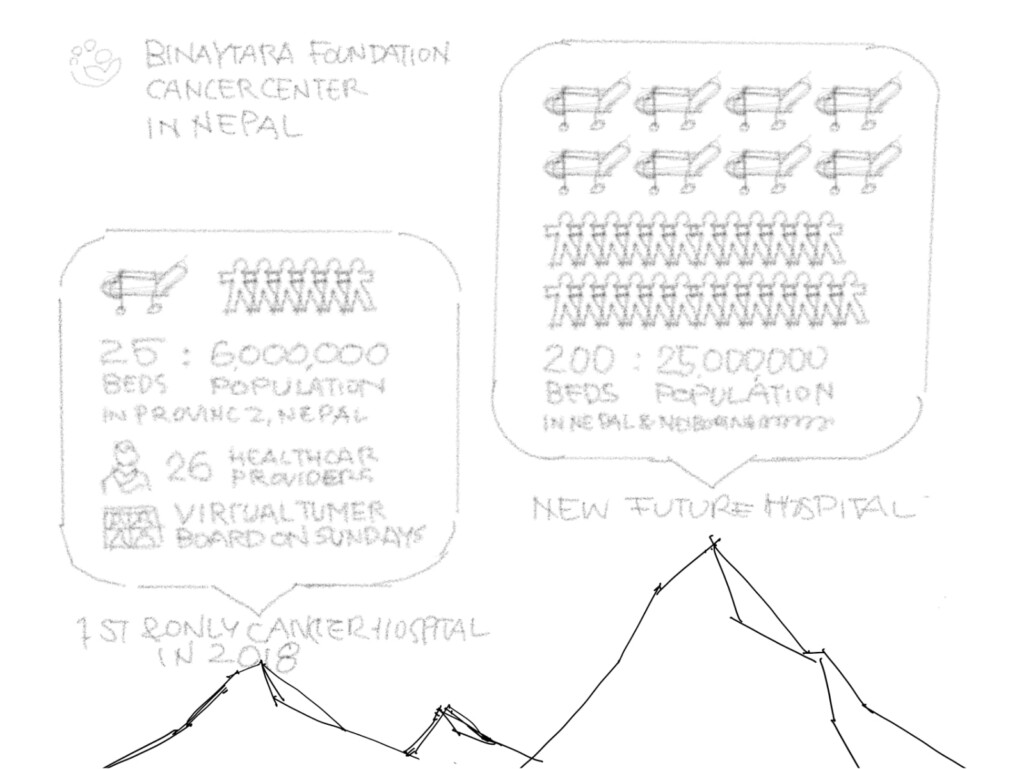 BINAYTARA FOUNDATION
CANCER CENTER
IN NEPAL
25 : 6,000,000
BEDS POPULATION
IN PROVINC 2, NEPAL
26 HEALTHCAR
PROVIDERS
VIRTUAL TUMER
BOARD ON SUNDAYS
1ST & ONLY CANCER HOSPITAL
IN 2018
200 : 25,000,000
BEDS POPULATION
IN NEPAL &
NEW FUTURE HOSPITAL